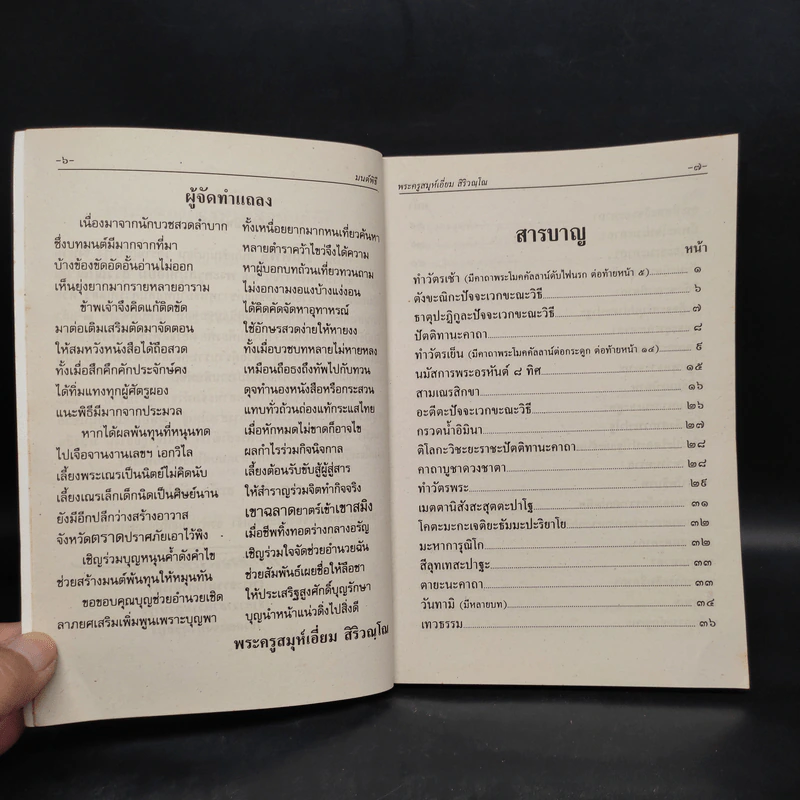 –๖–
มนต์พิธี
ผู้จัดทำแถลง
เนื่องมาจากนักบวชสวดลำบาก ทั้งเหนื่อยยากมากหนเที่ยวค้นหา
ซึ่งบทมนต์มีมากจากที่มา หลายตำราคว้าไขว่จึงได้ความ
บ้างข้องขัดอัดอั้นอ่านไม่ออก หาผู้บอกบทถ้วนเที่ยวทวนถาม
เห็นยุ่งยากมากรายหลายอาราม ไม่งอกงามงอแงบ้างแง่งอน
ข้าพเจ้าจึงคิดแก้ติดขัด ได้คิดคัดจัดหาอุทาหรณ์
มาต่อเติมเสริมตัดมาจัดตอน ใช้อักษรสวดง่ายให้หายงง
ให้สมหวังหนังสือได้ถือสวด ทั้งเมื่อบวชบทหลายไม่หายหลง
ทั้งเมื่อสึกคึกคักประจักษ์คง เหมือนถือธงถึงทัพไปกับทวน
ได้ทิ่มแทงทุกผู้ศัตรูผอง ดุจทำนองหนังสือหรือกระสวน
แนะพิธีมีมากจากประมวล แทบทั่วถ้วนถ่องแท้กระแสไทย
หากได้ผลพ้นทุนที่หนุนทด เมื่อหักหมดไม่ขาดก็อาจไข
ไปเจือจานงานเลขฯ เอกวิไล ผลกำไรร่วมกิจนิจกาล
เลี้ยงพระเณรเป็นนิตย์ไม่คิดนับ เลี้ยงต้อนรับขับสู้ผู้สู่สาร
เลี้ยงเณรเล็กเด็กนิดเป็นศิษย์นาน ให้สำราญร่วมจิตทำกิจจริง
ยังมีอีกปลีกว่างสร้างอาวาส เขาฉลาดยาตร์เข้าเขาสมิง
จังหวัดตราดปราศภัยเอาไว้พิง เมื่อชีพทิ้งทอดร่างกลางอรัญ
เชิญร่วมบุญหนุนค้ำดังคำไข เชิญร่วมใจจัดช่วยอำนวยฉัน
ช่วยสร้างมนต์พ้นทุนให้หมุนทัน ช่วยสัมพันธ์เผยชื่อให้ลือชา
ขอขอบคุณบุญช่วยอำนวยเชิด ให้ประเสริฐสูงศักดิ์บุญรักษา
ลาภยศเสริมเพิ่มพูนเพราะบุญพา บุญนำหน้าแน่วดิ่งไปสิ่งดี
พระครูสมุห์เอี่ยม สิริวณฺโณ
พระครูสมุห์เอี่ยม สิริวณฺโณ
–๗–
สารบาญ
หน้า
ทำวัตรเช้า (มีคาถาพระโมคคัลลาน์ดับไฟนรก ต่อท้ายหน้า ๕) ๑
ตังขะณิกะปัจจะเวกขะณะวิธี ๖
ธาตุปะฏิกูละปัจจะเวกขะณะวิธี ๗
ปัตติทานะคาถา ๘
ทำวัตรเย็น (มีคาถาพระโมคคัลลาน์ต่อกระดูก ต่อท้ายหน้า ๑๔) ๙
นมัสการพระอรหันต์ ๘ ทิศ ๑๕
สามเณรสิกขา ๑๖
อะตีตะปัจจะเวกขะณะวิธี ๒๖
กรวดน้ำอิมินา ๒๗
ติโลกะวิชะยะราชะปัตติทานะคาถา ๒๘
คาถาบูชาดวงชาตา ๒๘
ทำวัตรพระ ๒๙
เมตตานิสังสะสุตตะปาโฐ ๓๑
โคตะมะกะเจติยะธัมมะปะริยาโย ๓๒
มะหาการุณิโก ๓๒
สีลุทเทสะปาฐะ ๓๓
ตายะนะคาถา ๓๓
วันทามิ (มีหลายบท) ๓๔
เทวธรรม ๓๖